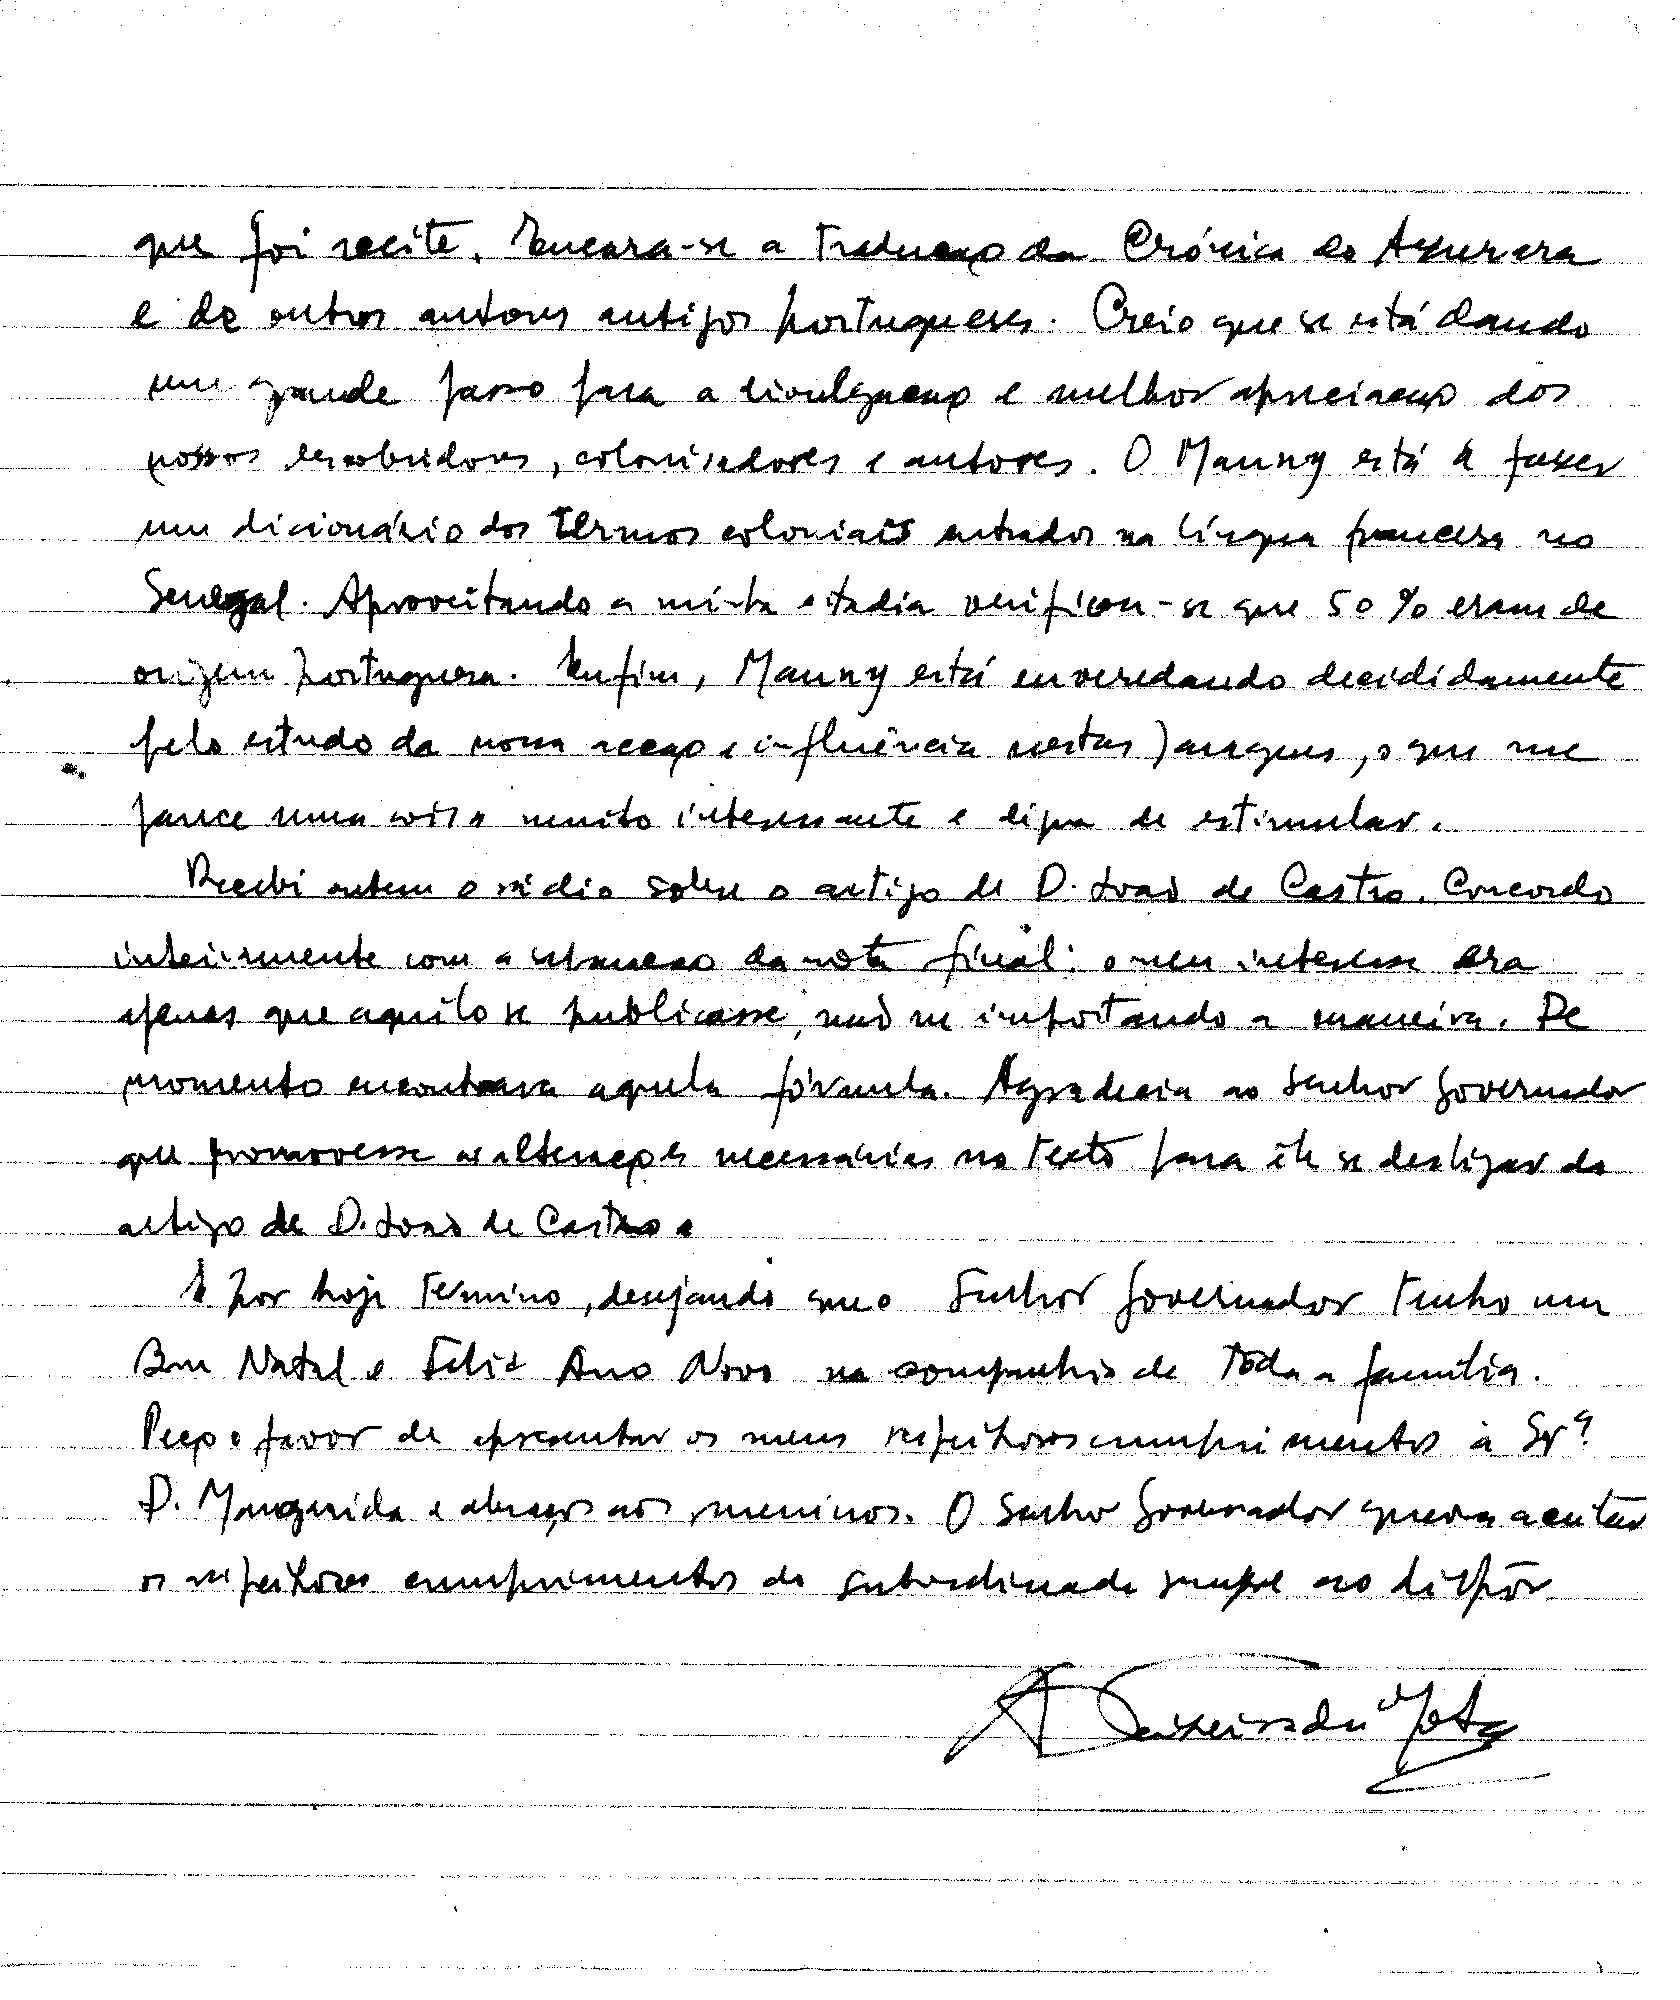 que foi aceite. Encara-se a tradução da Crónica de Azurara
e de outros autores antigos portugueses. Creio que se está dando
um grande passo para a divulgação e melhor apreciação dos
nossos descobridores, colonizadores e autores. O Mauny está a fazer
um dicionário dos termos coloniais entrados na língua francesa no
Senegal. Aproveitando a minha estadia verificou-se que 50% eram de
origem portuguesa. Enfim, Mauny está enveredando decididamente
pelo estudo da nossa acção e influência nestas paragens, o que me
parece uma coisa muito interessante e digna de estimular.
Recebi ontem o rádio sobre o artigo de D. João de Castro. Concordo
inteiramente com a da nota final: o meu interesse era
apenas que aquilo se publicasse, não me importando a maneira. De
momento encontrara aquela fórmula. Agradecia ao Senhor Governador
que promovesse as alterações necessárias no texto para êle se desligar do
artigo de D. João de Castro.
E por hoje termino, desejando que o Senhor Governador tenha um
Bom Natal e Feliz Ano Novo na companhia de tôda a família.
Peço o favor de apresentar os meus respeitosos cumprimentos à Srª
D. Margarida e abraços aos meninos. O Senhor Governador queira aceitar
os respeitosos cumprimentos do subordinado sempre ao dispôr
A Teixeira da Mota